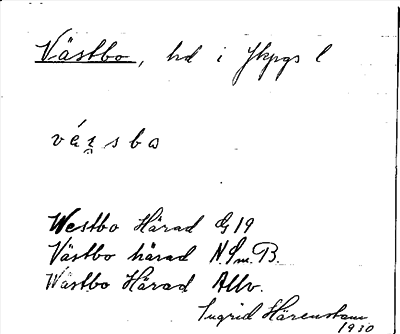 Västbo, hd i Jkpgs l
vá̤rsbo
Westbo Härad G 19
Västbo härad N. Sm. B.
Wästbo Härad Allv.
Ingrid Härenstam
1930